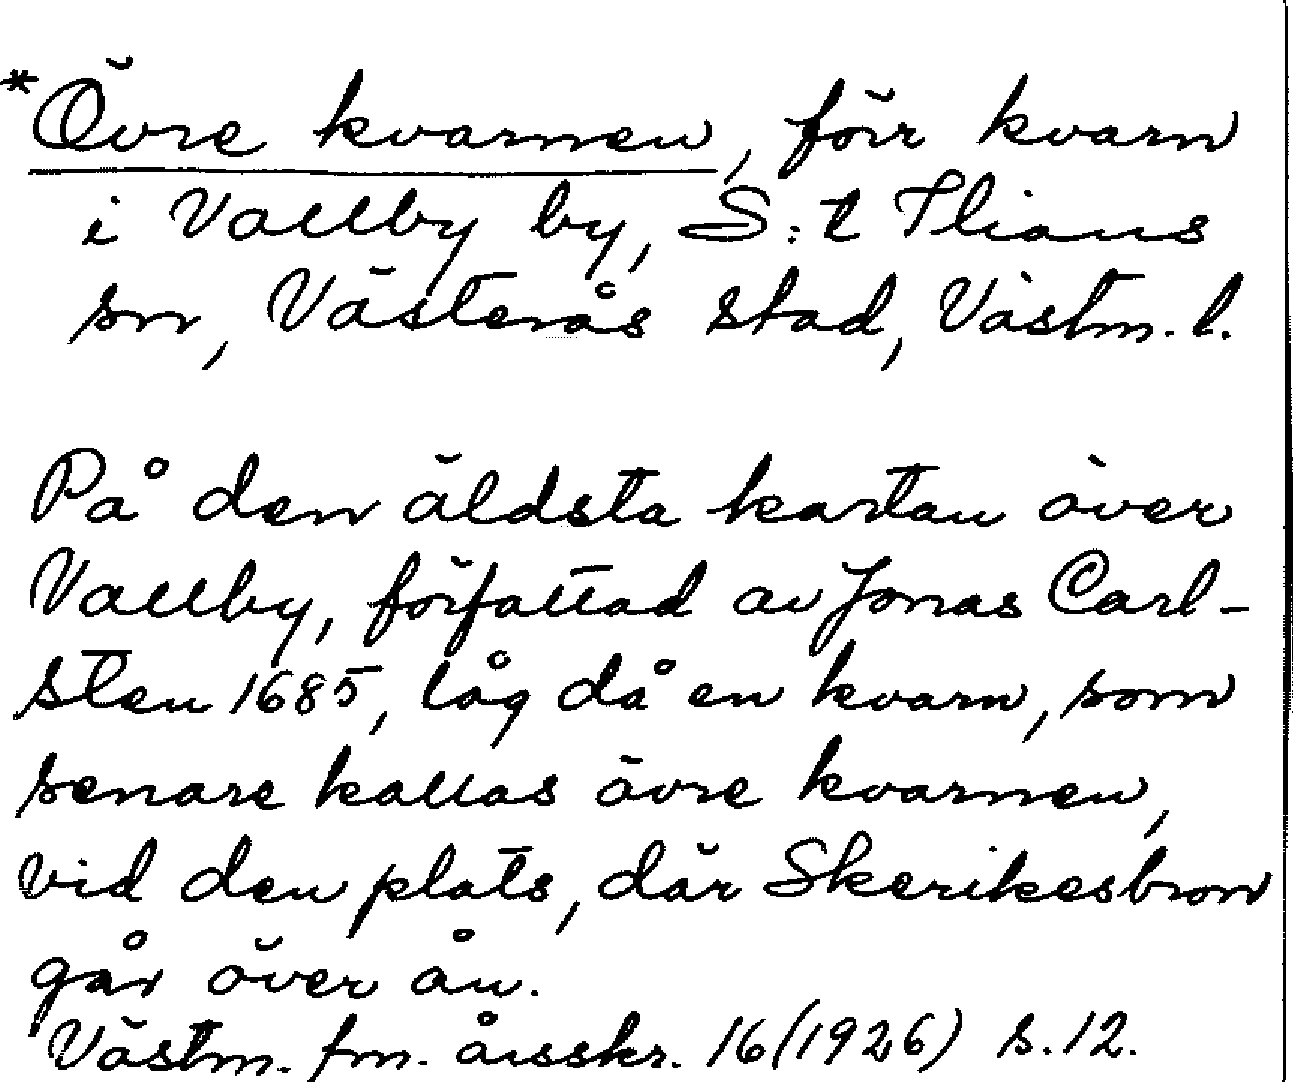 *Övre kvarnen, förr kvarn
i Vallby by, S:t Ilians
sn, Västerås stad, Västm. l.
På den äldsta kartan över
Vallby, författad av Jonas Carl-
sten 1685, låg då en kvarn, som
senare kallas övre kvarnen,
vid den plats, där Skerikesbron
går över ån.
Västm. fm. årsskr. 16(1926) s. 12.